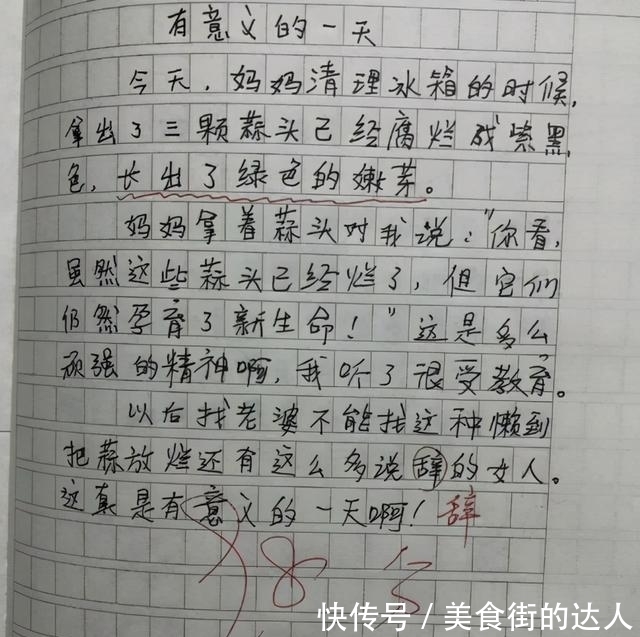 有意义的一天
今天，妈妈清理冰箱的时候，
拿出了三颗蒜头已经腐烂成紫黑
色，长出了绿色的嫩芽。
妈妈拿着蒜头对我说："你看，
虽然这些蒜头已经烂了，但它们
仍然孕育了新生命！"这是多么
顽强的精神啊，我听了很受教育。
以后找老婆不能找这种懒到
把蒜放烂还有这么多说辞的女人。
这真是有意义的一天啊！辞
快传号/美食街的达人